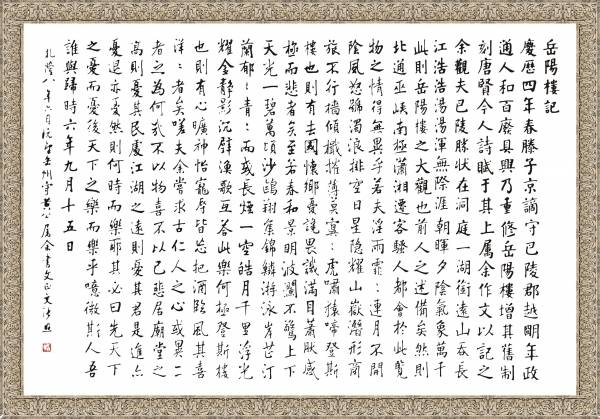 岳陽樓記
慶歷四年春滕子京謫守巴陵郡越明年政
通人和百廢具興乃重修岳陽樓增其舊制
刻唐賢今人詩賦于其上屬余作文以記之
余觀夫巴陵勝狀在洞庭一湖銜遠山吞長
江浩浩湯湯渾無際涯朝暉夕陰氣象萬千
此則岳陽樓之大觀也前人之述備矣然則
北通巫峽南極瀟湘遷客騷人都會於此覽
物之情得無異乎若夫淫雨霏〻連月不開
陰風怒號濁浪排空日星隱耀山嶽潛形商
旅不行檣傾檝摧薄莫冥〻虎嘯猿啼登斯
樓也則有去國懷鄉憂讒畏譏滿目蕭肰感
極而悲者矣至若春和景明波瀾不驚上下
天光一碧萬頃沙鷗翔集錦鱗游泳岸芷汀
蘭郁〻青〻而或長煙一空皓月千里浮光
耀金靜影沉璧漁歌互答此樂何極登斯樓
也則有心曠神怡寵辱皆忘把酒臨風其喜
洋〻者矣嗟夫余嘗求古仁人之心或異二
者之為何哉不以物喜不以己悲居廟堂之
高則憂其民處江湖之遠則憂其君是進亦
憂退亦憂然則何時而樂耶其必曰先天下
之憂而憂後天下之樂而樂乎噫微斯人吾
誰與歸時六年九月十五日